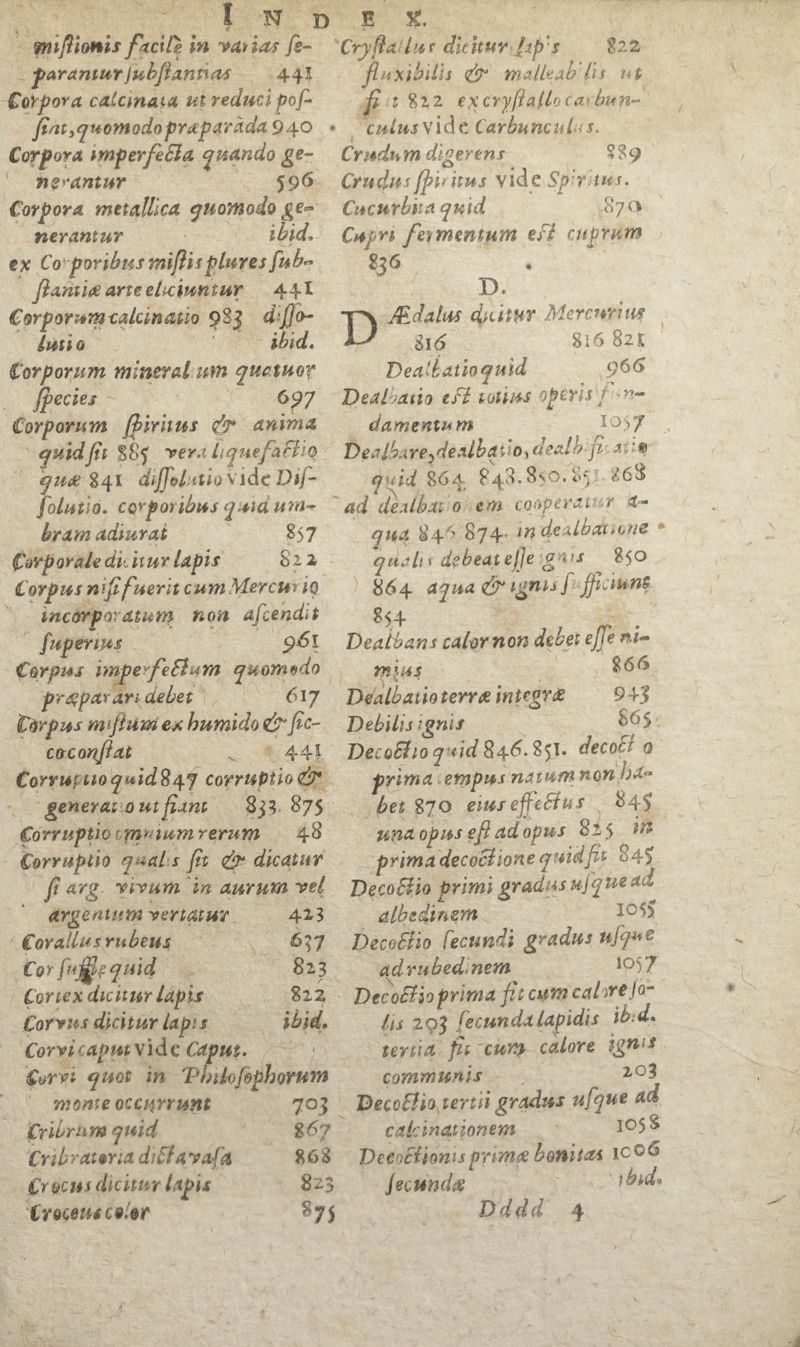 INDEX.
miſtionis facilè in varias ſe-
parantur ſubſtantias 441
Corpora calcinata ut reduci poſ-
ſint, quomodo præparāda 940
Corpora imperfecta quando ge-
nerantur 596
Corpora metallica quomodo ge-
nerantur ibid.
ex Corporibus miſtis plures ſub-
ſtantiæ arte eliciuntur 441
Corporum calcinatio 983 diſſo-
lutio ibid.
Corporum mineralium quatuor
ſpecies 697
Corporum ſpiritus & anima
quid ſit 885 vera liquefactio
quæ 841 diſſolutio vide Diſ-
ſolutio. corporibus quid um-
bram adiurat 857
Corporale dicitur lapis 822
Corpus niſi fuerit cum Mercurio
incorporatum non aſcendit
ſuperius 961
Corpus imperfectum quomodo
præparari debet 617
Corpus miſtum ex humido & ſic-
co conſtat 441
Corruptio quid 847 corruptio &
generatio ut fiant 833. 875
Corruptio omnium rerum 48
Corruptio qualis ſit & dicatur
ſi arg. vivum in aurum vel
argentum vertatur 423
Corallus rubeus 637
Cor ſuffle quid 823
Cortex dicitur lapis 822
Corvus dicitur lapis ibid.
Corvi caput vide Caput.
Corvi quot in Philoſophorum
monte occurrunt 703
Cribrum quid 867
Cribratoria dicta vaſa 868
Crocus dicitur lapis 823
Croceus color 875
Cryſtallus dicitur lapis 822
fluxibilis & malleabilis ut
fit 822 ex cryſtallo carbun-
culus vide Carbunculus.
Crudum digerens 889
Crudus ſpiritus vide Spiritus.
Cucurbita quid 870
Cupri fermentum eſt cuprum
836
D.
DÆdalus dicitur Mercurius
816 816 821
Dealbatio quid 966
Dealbatio eſt totius operis fun-
damentum 1057
Dealbare, dealbatio, dealbificatio
quid 864. 848. 850. 851. 868
ad dealbationem cooperatur a-
qua 846 874. in dealbatione
qualis debeat eſſe ignis 850
864 aqua & ignis ſufficiunt
854
Dealbans calor non debet eſſe ni-
mius 866
Dealbatio terræ integræ 943
Debilis ignis 865
Decoctio quid 846. 851. decoctio
prima tempus natum non ha-
bet 870 eius effectus 845
una opus eſt ad opus 825 in
prima decoctione quid fit 845
Decoctio primi gradus uſque ad
albedinem 1055
Decoctio ſecundi gradus uſque
ad rubedinem 1057
Decoctio prima fit cum calore ſo-
lis 203 ſecunda lapidis ibid.
tertia fit cum calore ignis
communis 203
Decoctio tertii gradus uſque ad
calcinationem 1058
Decoctionis primæ bonitas 1006
ſecundæ ibid.
Dddd 4